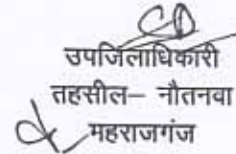 उपजिलाधिकारी
तहसील– नौतनवा
महराजगंज